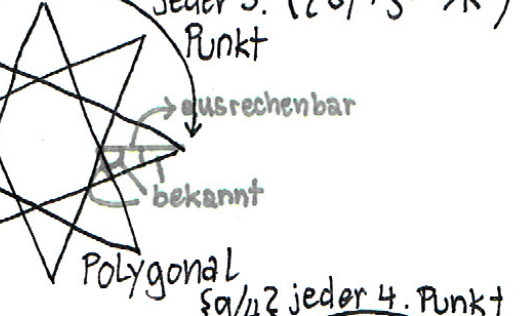 jeder 3.
Punkt
ausrechenbar
bekannt
Polygonal
{9/4} jeder 4. Punkt